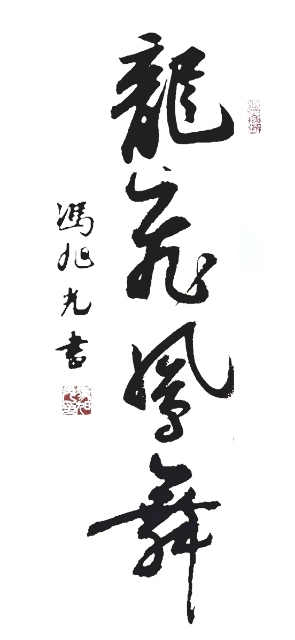 龍飛鳳舞
馮旭光書